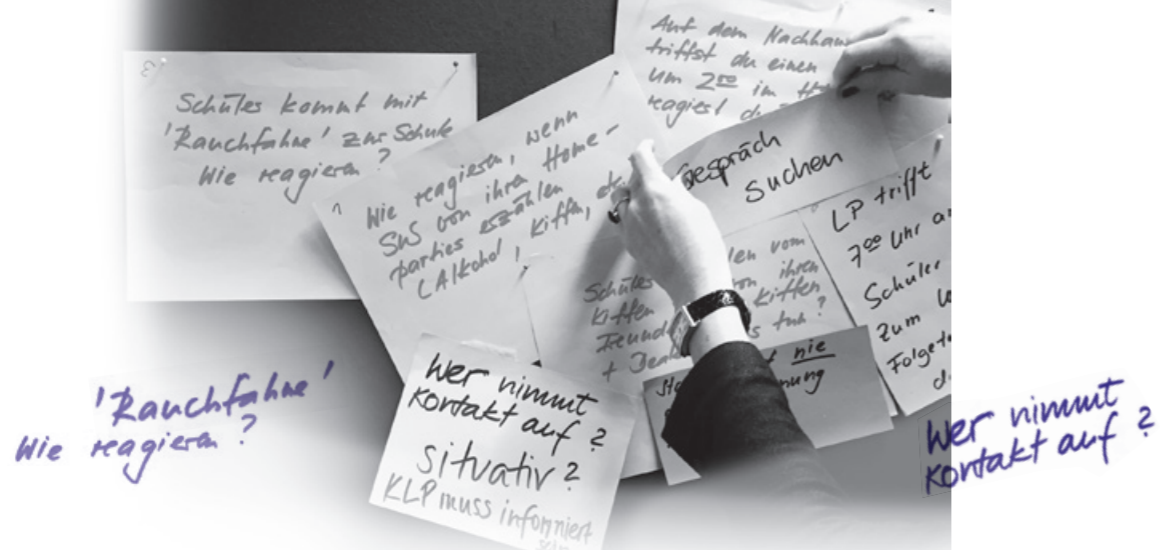 Schüler kommt mit
'Rauchfahne' zur Schule
Wie reagieren?
Wie reagieren, wenn
SuS von ihren Home-
parties erzählen
(Alkohol, Kiffen, etc
Auf dem Nachhau
triffst du einen
um 2⁰⁰ im
reagierst d
Gespräch
suchen
LP trifft
7⁰⁰ Uhr
Schüler
zum
Folget
d
Schüler
Kiffen
Freund
+
len vom
on ihren
Kiffen
s tun?
nie
nung
Wer nimmt
Kontakt auf?
situativ?
KLP muss informiert
sein
'Rauchfahne'
Wie reagieren?
Wer nimmt
Kontakt auf?